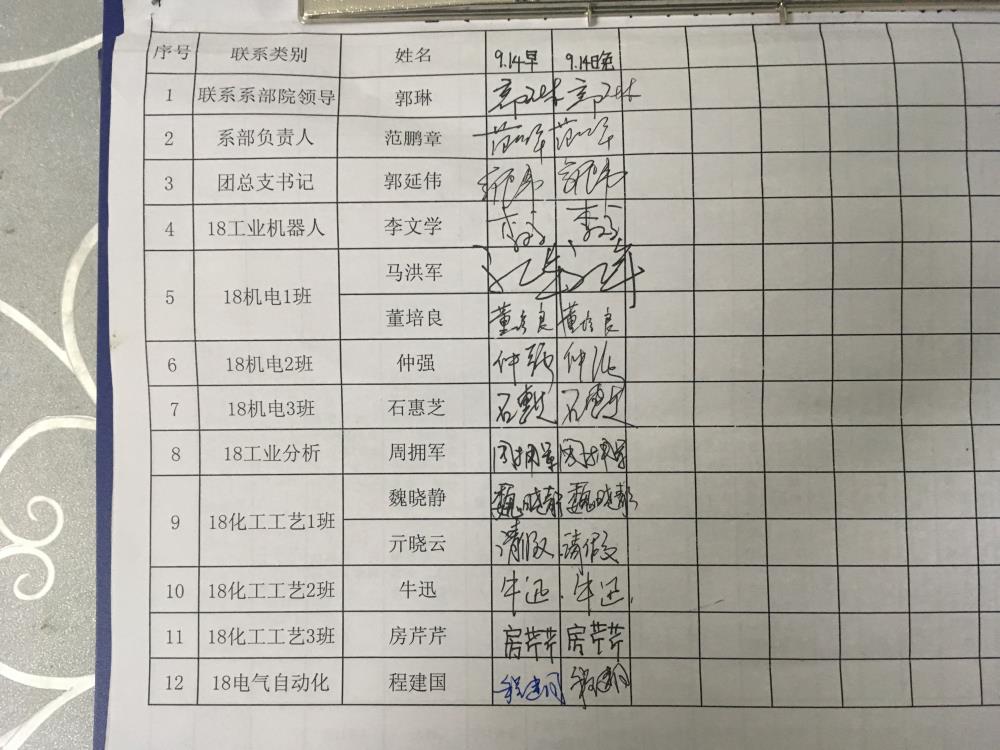 序号 联系类别 姓名 9.14早 9.14晚
1 联系系部院领导 郭琳 郭琳 郭琳
2 系部负责人 范鹏章
3 团总支书记 郭延伟
4 18工业机器人 李文学
5 18机电1班 马洪军
董培良 董培良 董培良
6 18机电2班 仲强 仲强 仲强
7 18机电3班 石惠芝 石惠芝 石惠芝
8 18工业分析 周拥军 周拥军 周拥军
9 18化工工艺1班 魏晓静 魏晓静 魏晓静
亓晓云 请假 请假
10 18化工工艺2班 牛迅 牛迅. 牛迅.
11 18化工工艺3班 房芹芹 房芹芹 房芹芹
12 18电气自动化 程建国 程建国 程建国